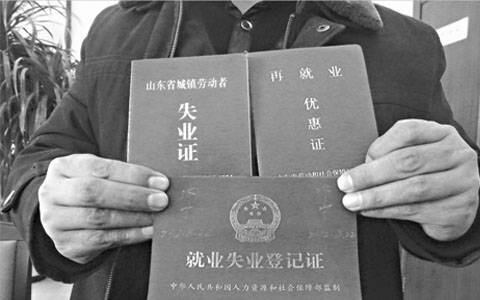 山东省城镇劳动者
失业证
再就业
优惠证
就业失业登记证
中华人民共和国人力资源和社会保障部监制